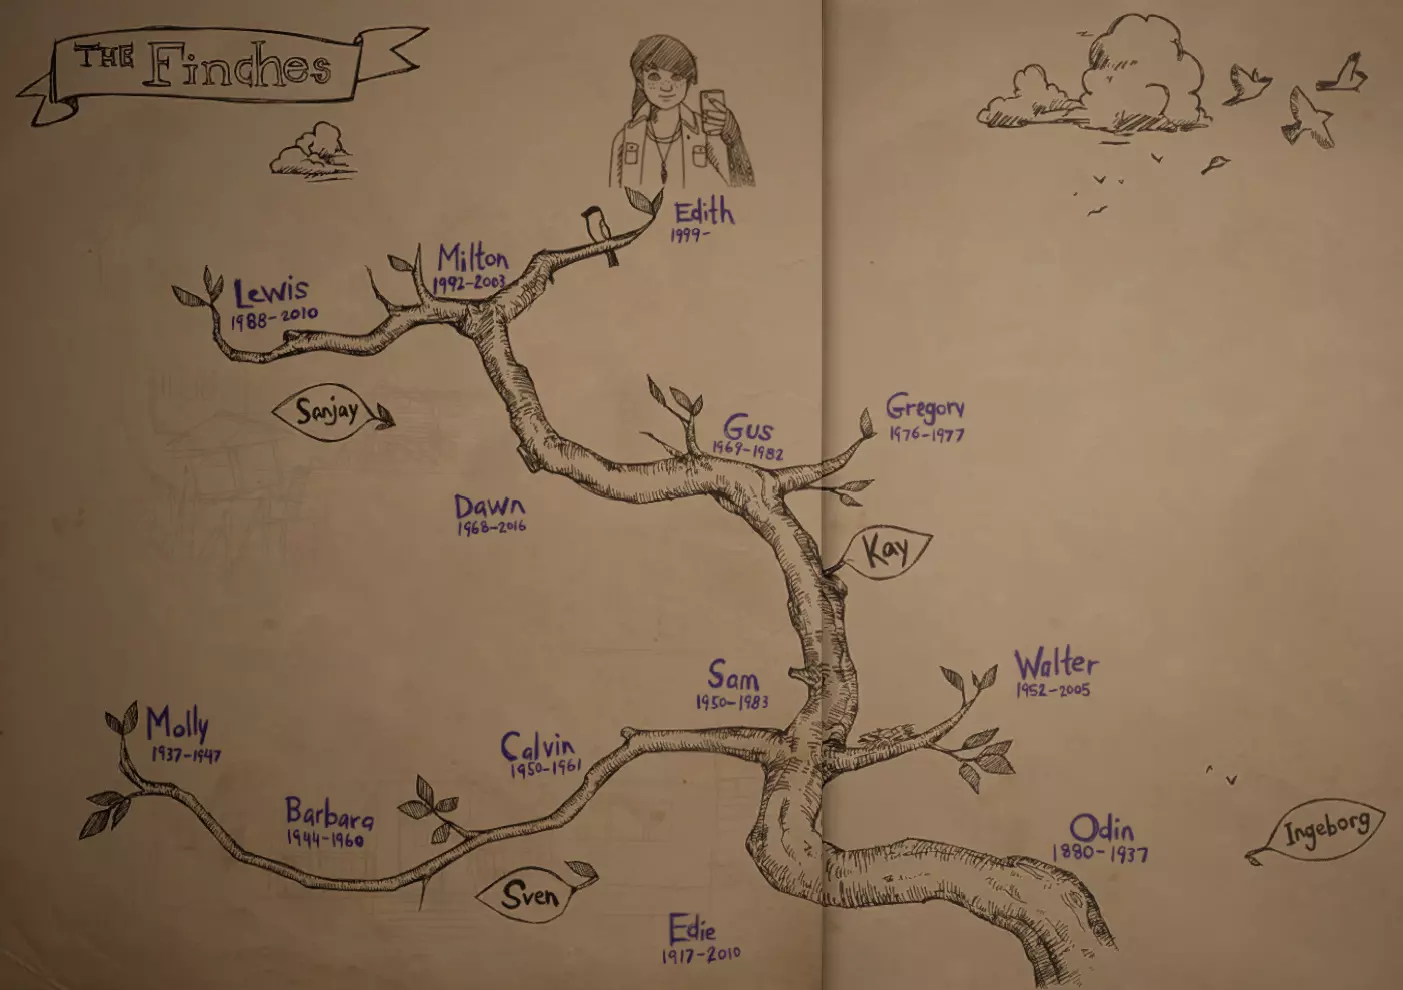 THE Finches
Edith
1999-
Milton
1992-2003
Lewis
1988-2010
Sanjay
Gregory
1976-1977
Gus
1969-1982
Dawn
1968-2016
Kay
Sam
1950-1983
Walter
1952-2005
Molly
1937-1947
Calvin
1950-1961
Barbara
1944-1960
Odin
1880-1937
Ingeborg
Sven
Edie
1917-2010